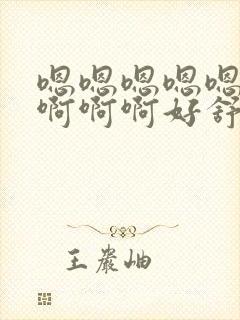 嗯嗯嗯嗯嗯
啊啊啊好舒
王岩岫